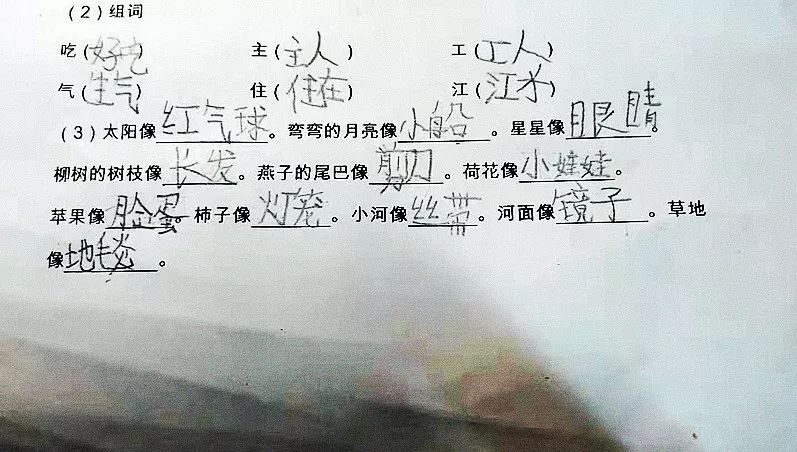 （2）组词
吃（好吃） 主（主人） 工（工人）
气（生气） 住（住在） 江（江水）
（3）太阳像红气球。弯弯的月亮像小船。星星像眼睛。
柳树的树枝像长发。燕子的尾巴像剪刀。荷花像小娃娃。
苹果像脸蛋。柿子像灯笼。小河像丝带。河面像镜子。草地
像地毯。